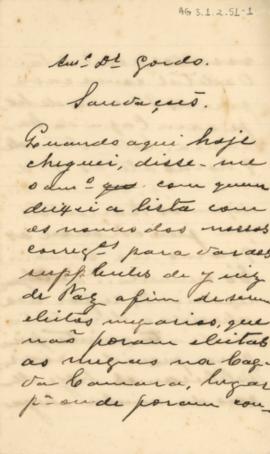 AG 3.1.2.51-1
Am.º Dr. Gordo.
Saudações.
Quando aqui hoje
cheguei, disse-me
o am.º que com quem
deixei a lista com
os nomes dos nossos
correg.os para
supplentes de Juiz
de Paz afim de serem
eleitos mezarios, que
não foram eleitas
as mezas na
da Camara, lugar
p.ª onde foram con-